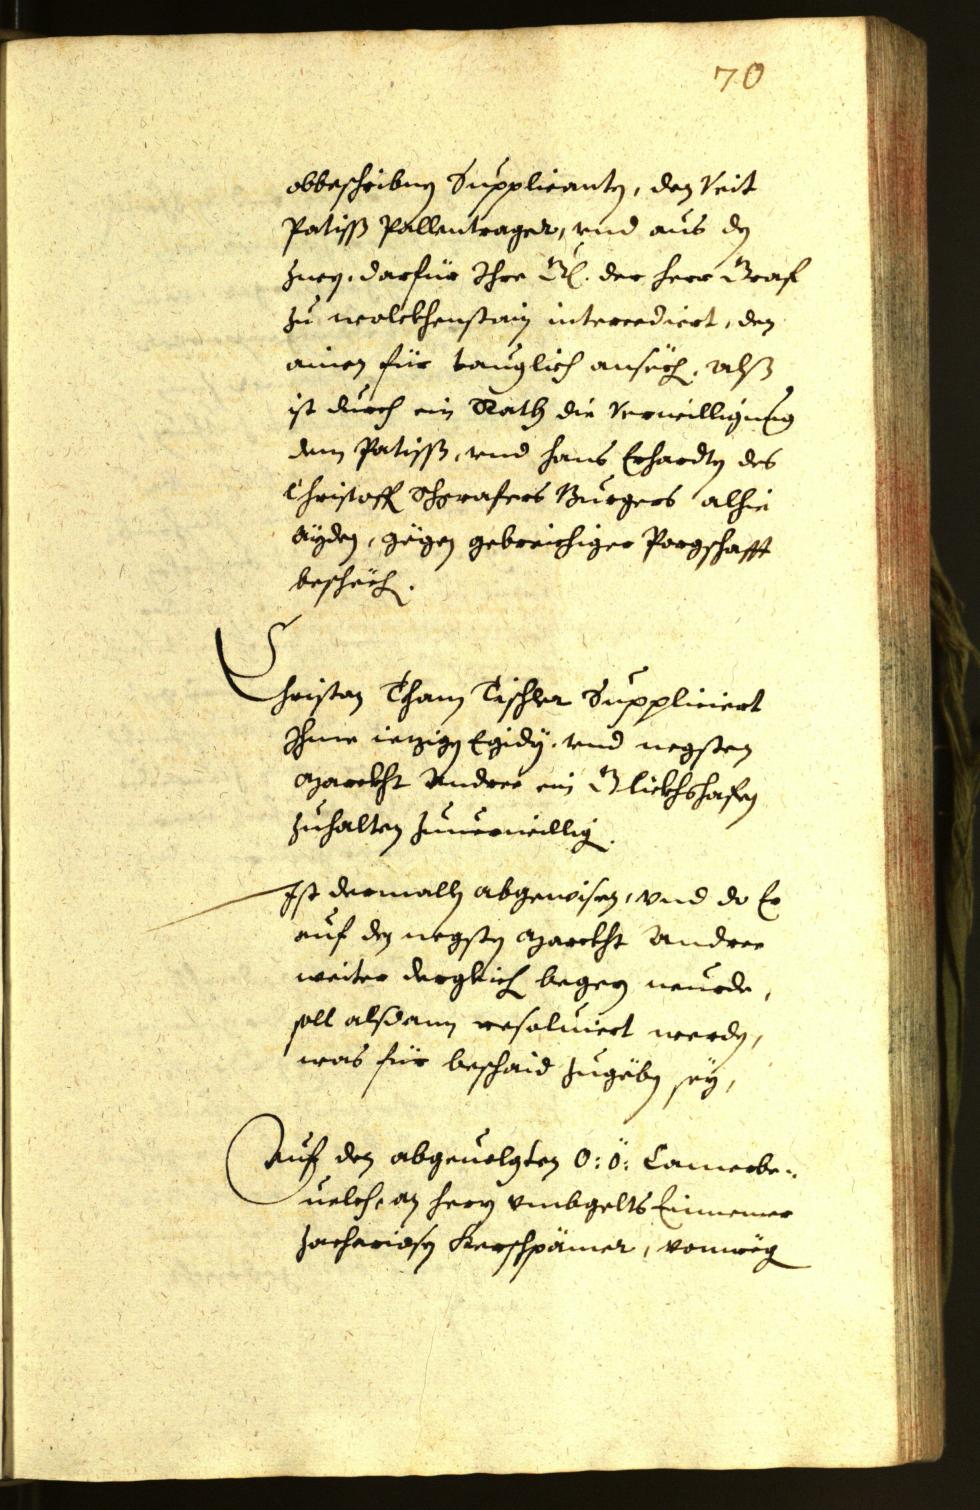 70
obbeschribnen Supplicanten, den Veit
Patiss Pallentrager, vnd aus den
zwey, darfür Ihre Gl. der herr Graf
zu wolckhenstain intercediert, den
ainen für tauglich ansech, alß
ist durch ein Rath die Verwilligung
dem Patiss, vnd hans Erhardten des
Christoff Burgers alhie
Ayden, gegen gebreichiger Porgschafft
beschech.
Christan Tham Tischler Suppliciert
Ihme ietzigen Egidy, vnd negsten
Marckht Andree ein Glickhshafen
zuhalten zuuerwillig.
Ist dermalln abgewisen, vnd do Er
auf den negsten Marckht Andree
weiter dergleich begern wurde,
soll alsdann resoluiert werden,
was für beschaid zugeben sey,
Auf den abgeuolgten O: Ö: Camerbe-
uelch, an herrn vmbgelts Einnemer
Zachariasen Kerschpämer, vonweg